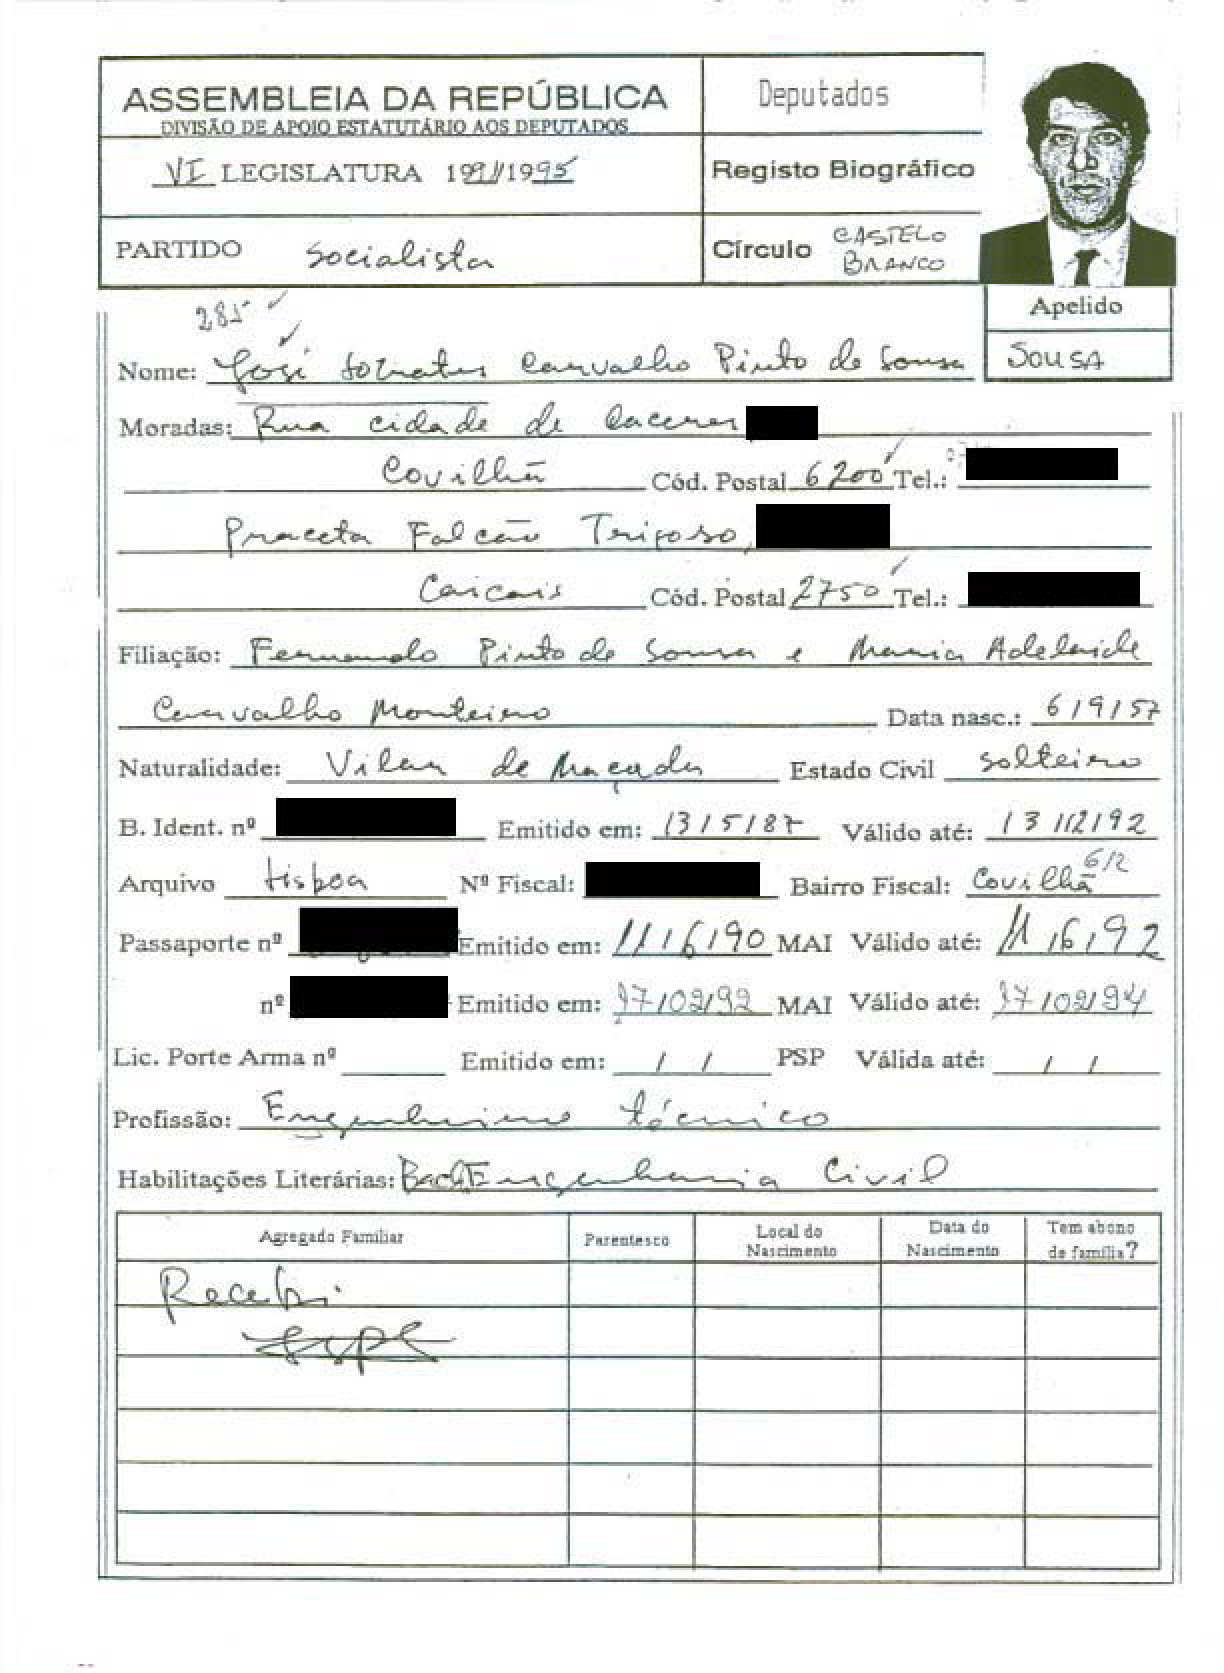 ASSEMBLEIA DA REPÚBLICA
DIVISÃO DE APOIO ESTATUTÁRIO AOS DEPUTADOS
Deputados
VI LEGISLATURA 1991/1995
Registo Biográfico
PARTIDO Socialista
Círculo CASTELO
BRANCO
Apelido
SOUSA
285
Nome: José Sócrates Carvalho Pinto de Sousa
Moradas: Rua cidade de Caceres
Covilhã Cód. Postal 6200 Tel.:
Praceta Falcão Trigoso,
Cascais Cód. Postal 2750 Tel.:
Filiação: Fernando Pinto de Sousa e Maria Adelaide
Carvalho Monteiro Data nasc.: 6/9/57
Naturalidade: Vilar de Maçada Estado Civil solteiro
B. Ident. nº Emitido em: 13/5/87 Válido até: 13/12/92
Arquivo Lisboa Nº Fiscal: Bairro Fiscal: Covilhã 612
Passaporte nº Emitido em: 11/6/90 MAI Válido até: 11/6/92
nº Emitido em: 17/02/92 MAI Válido até: 17/02/94
Lic. Porte Arma nº Emitido em: / / PSP Válida até: / /
Profissão: Engenheiro técnico
Habilitações Literárias: Bach Engenharia Civil
Agregado Familiar Parentesco Local do Nascimento Data do Nascimento Tem abono de família?
Recebi.